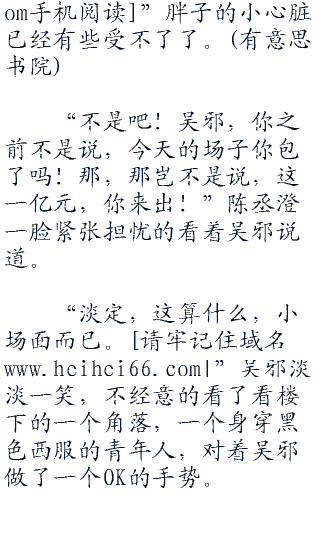 om手机阅读]”胖子的小心脏
已经有些受不了了。(有意思
书院)
“不是吧！吴邪，你之
前不是说，今天的场子你包
了吗！那，那岂不是说，这
一亿元，你来出！”陈丞澄
一脸紧张担忧的看着吴邪说
道。
“淡定，这算什么，小
场面而已。[请牢记住域名
www.hcihci66.com|”吴邪淡
淡一笑，不经意的看了看楼
下的一个角落，一个身穿黑
色西服的青年人，对着吴邪
做了一个OK的手势。